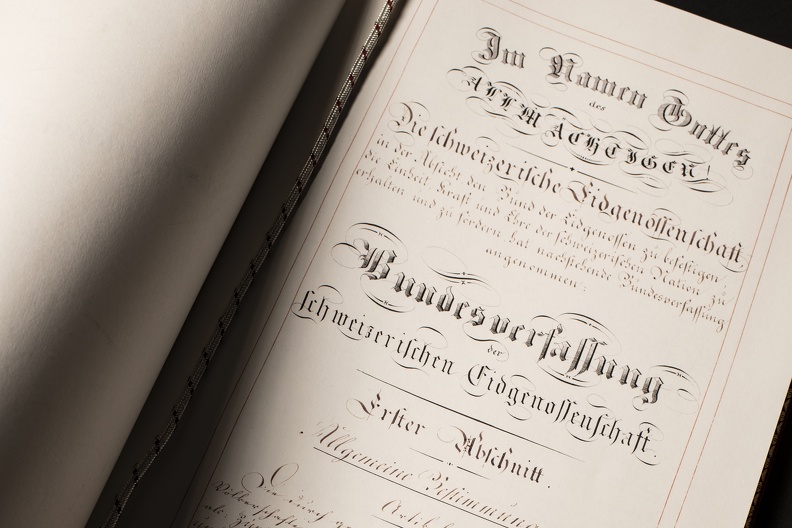 Im Namen Gottes
des
ALLMÆCHTIGEN!
Die schweizerische Eidgenossenschaft,
in der Absicht den Bund der Eidgenossen zu befestigen,
die Einheit Kraft und Ehre der schweizerischen Nation zu
erhalten und zu fördern hat nachstehende Bundesverfassung
angenommen:
Bundesverfassung
der
schweizerischen Eidgenossenschaft.
Erster Abschnitt.
Allgemeine Bestimmungen
Artikel
Die durch
Völkerschaften